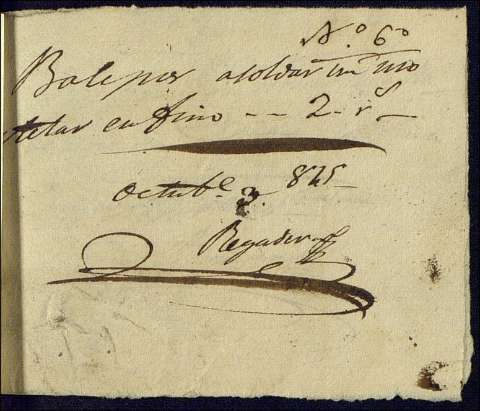 N.º 6º
Bale por asoldar un mo
en fino -- 2. r.s
Octub.e 3. 825
Regader